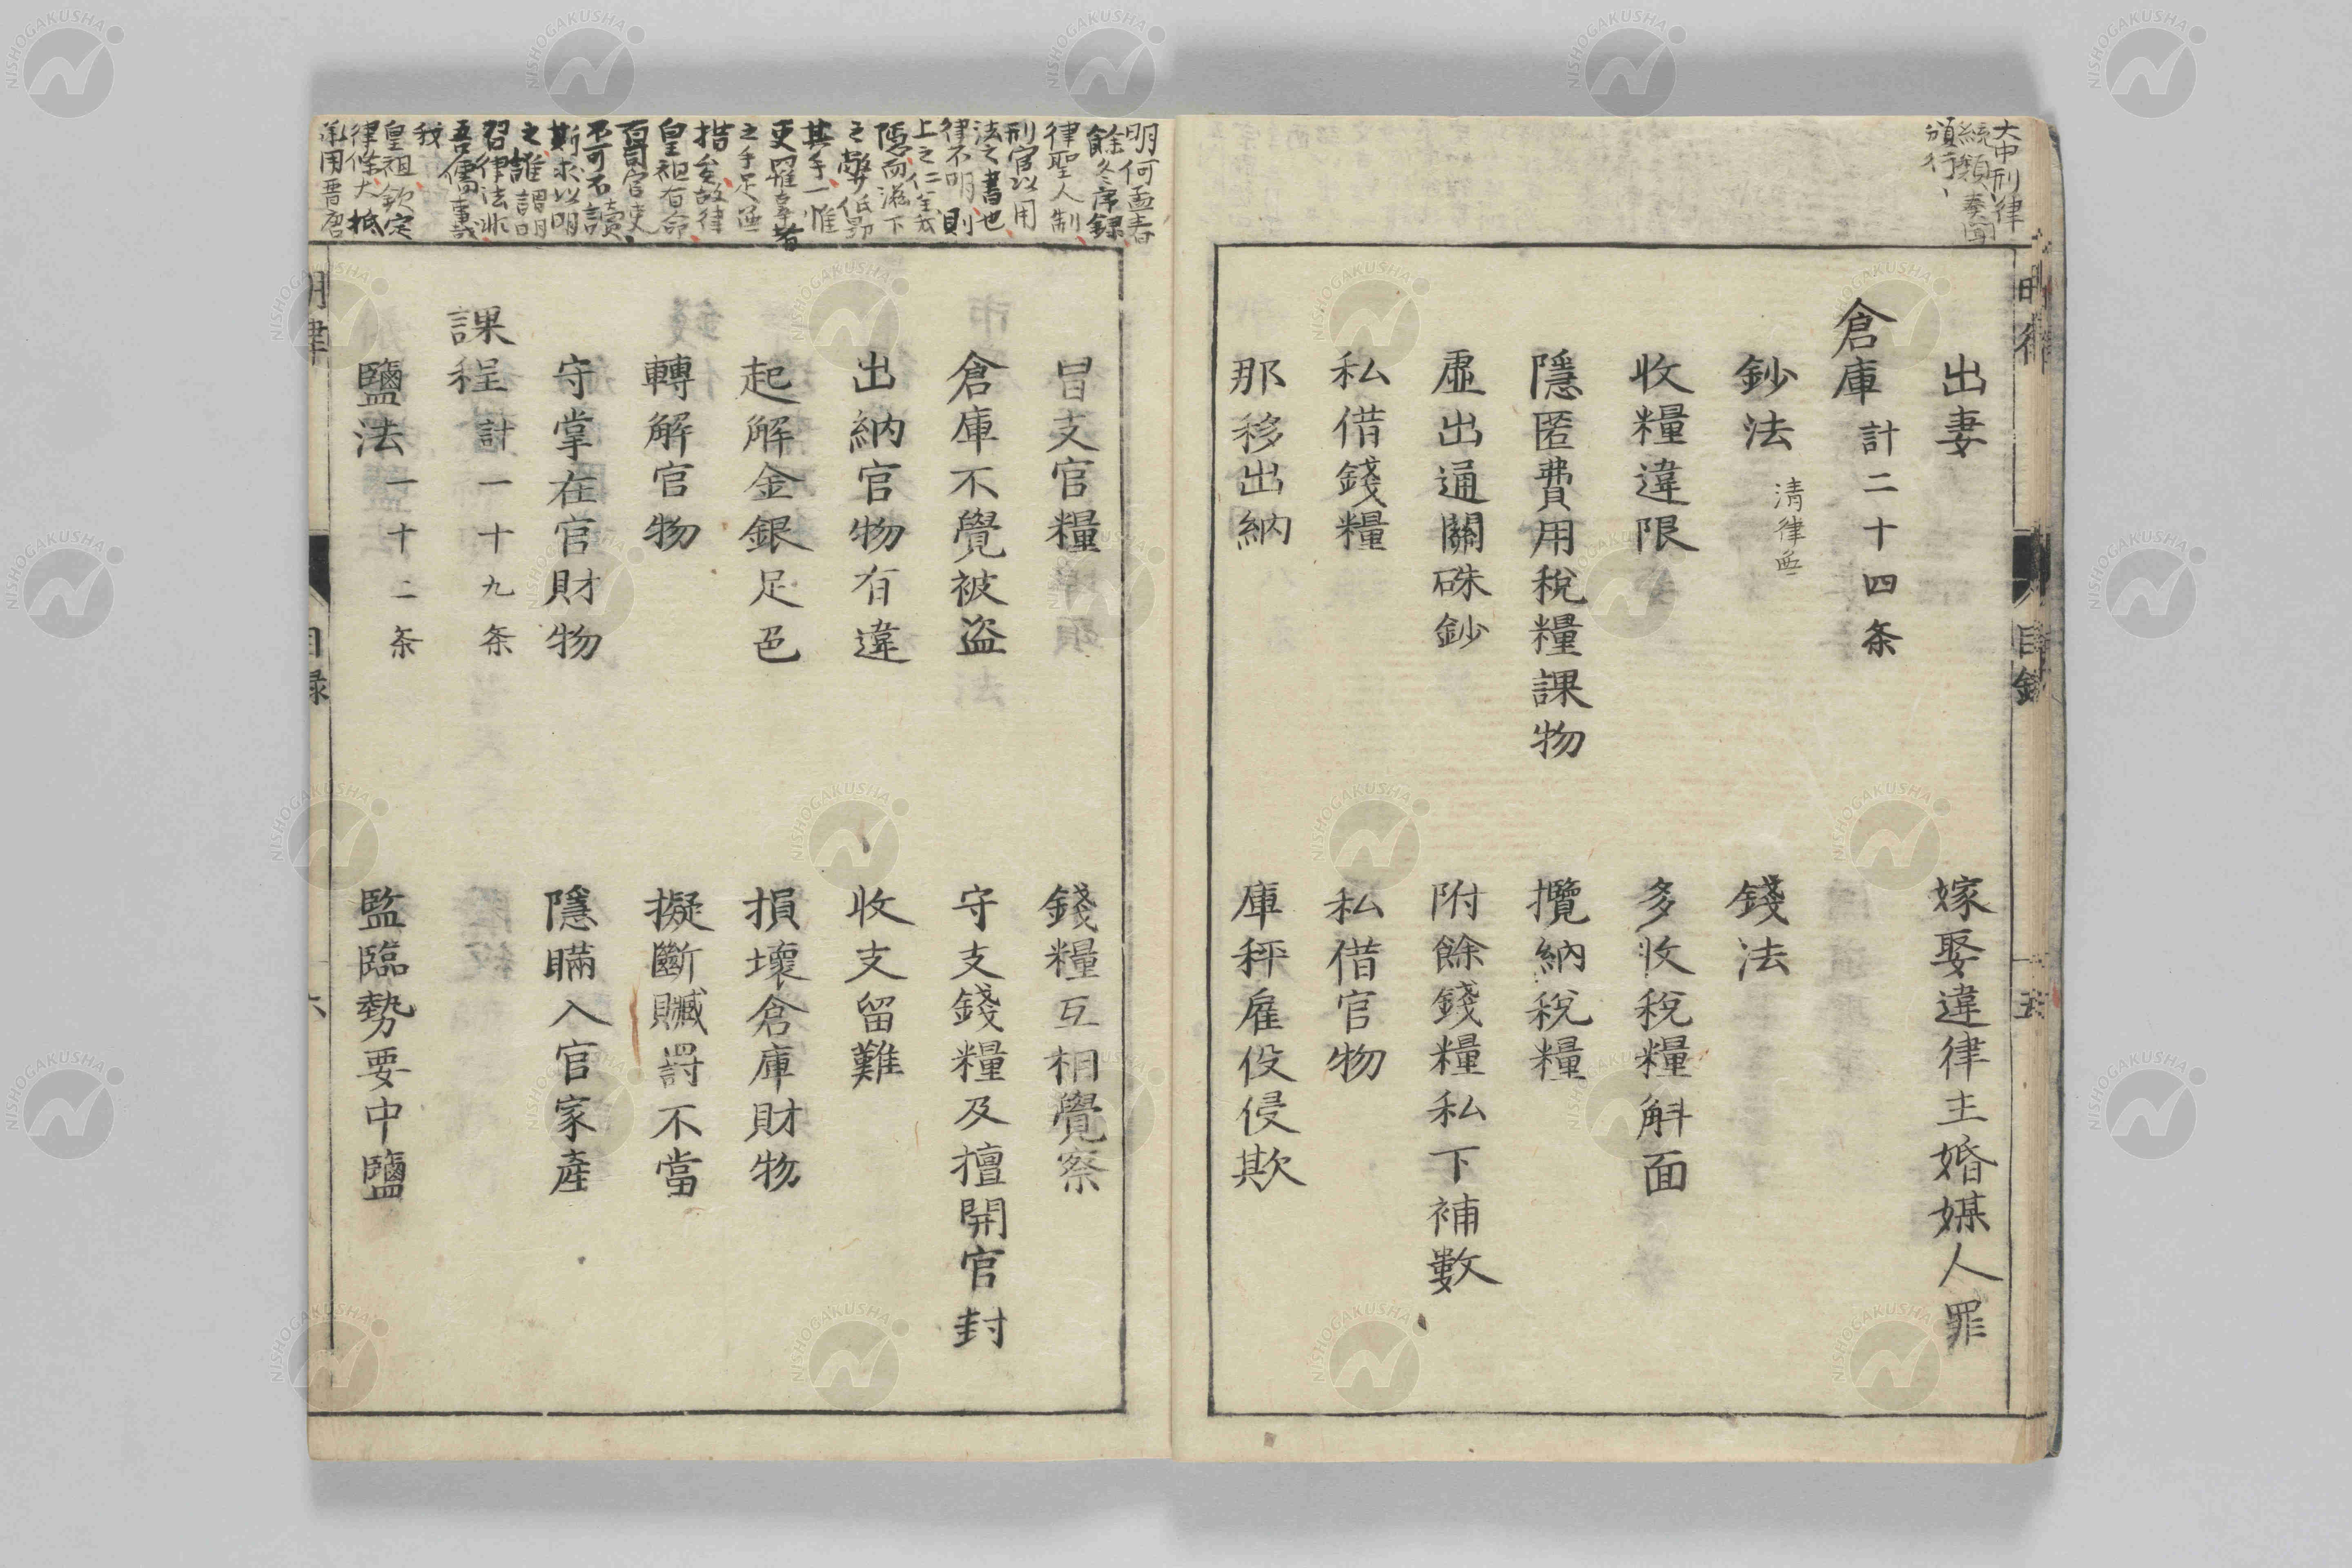 大中刑律
統類奏聞
頒行、
出妻
嫁娶違律主婚媒人罪
倉庫計二十四条
鈔法 清律無
錢法
收糧違限
多收稅糧斛面
隱匿費用稅糧課物
攬納稅糧
虛出通關硃鈔
附餘錢糧私下補數
私借錢糧
私借官物
那移出納
庫秤雇役侵欺
明律
目錄
五
明何孟春
餘冬序録
律聖人制
刑官以用
法之書也
律不明則
上之仁
隱而滋下
之弊
其手一惟
吏羅
之手足無
措矣故律
皇祖有命
百司官吏
不可不讀
斯求以明
之誰謂明
習律法非
吾儒事哉
我
皇祖欽定
律條大抵
承用晋唐
冒支官糧
錢糧互相覺察
倉庫不覺被盜
守支錢糧及擅開官封
出納官物有違
收支留難
起解金銀足色
損壞倉庫財物
轉解官物
擬斷贓罰不當
守掌在官財物
隱瞞入官家產
課程計一十九条
鹽法一十二条
監臨勢要中鹽
明律
目録
六
NISHOGAKUSHA